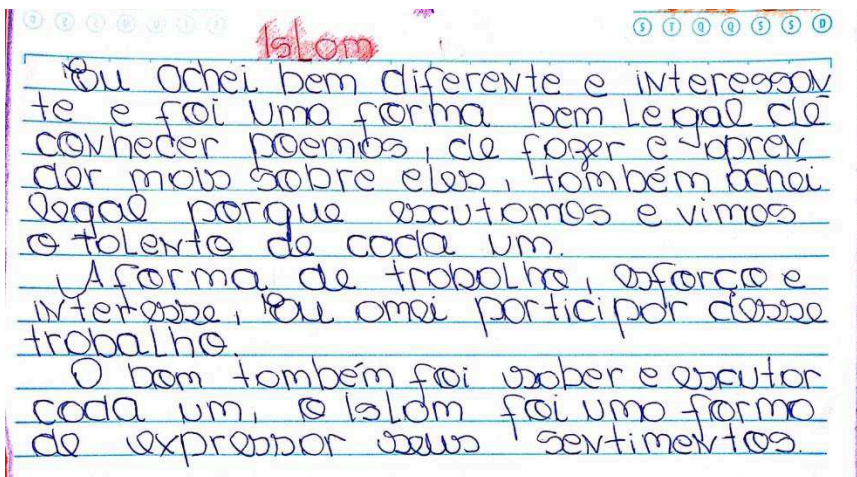 D S T Q Q S S D
Islam
Eu achei bem diferente e interessan
te e foi uma forma bem legal de
conhecer poemas, de fazer e apren
der mais sobre eles, também achei
legal porque escutamos e vimos
o talento de cada um.
A forma de trabalho, esforço e
interesse, eu amei participar desse
trabalho.
O bom também foi saber e escutar
cada um, o Islam foi uma forma
de expressar seus sentimentos.